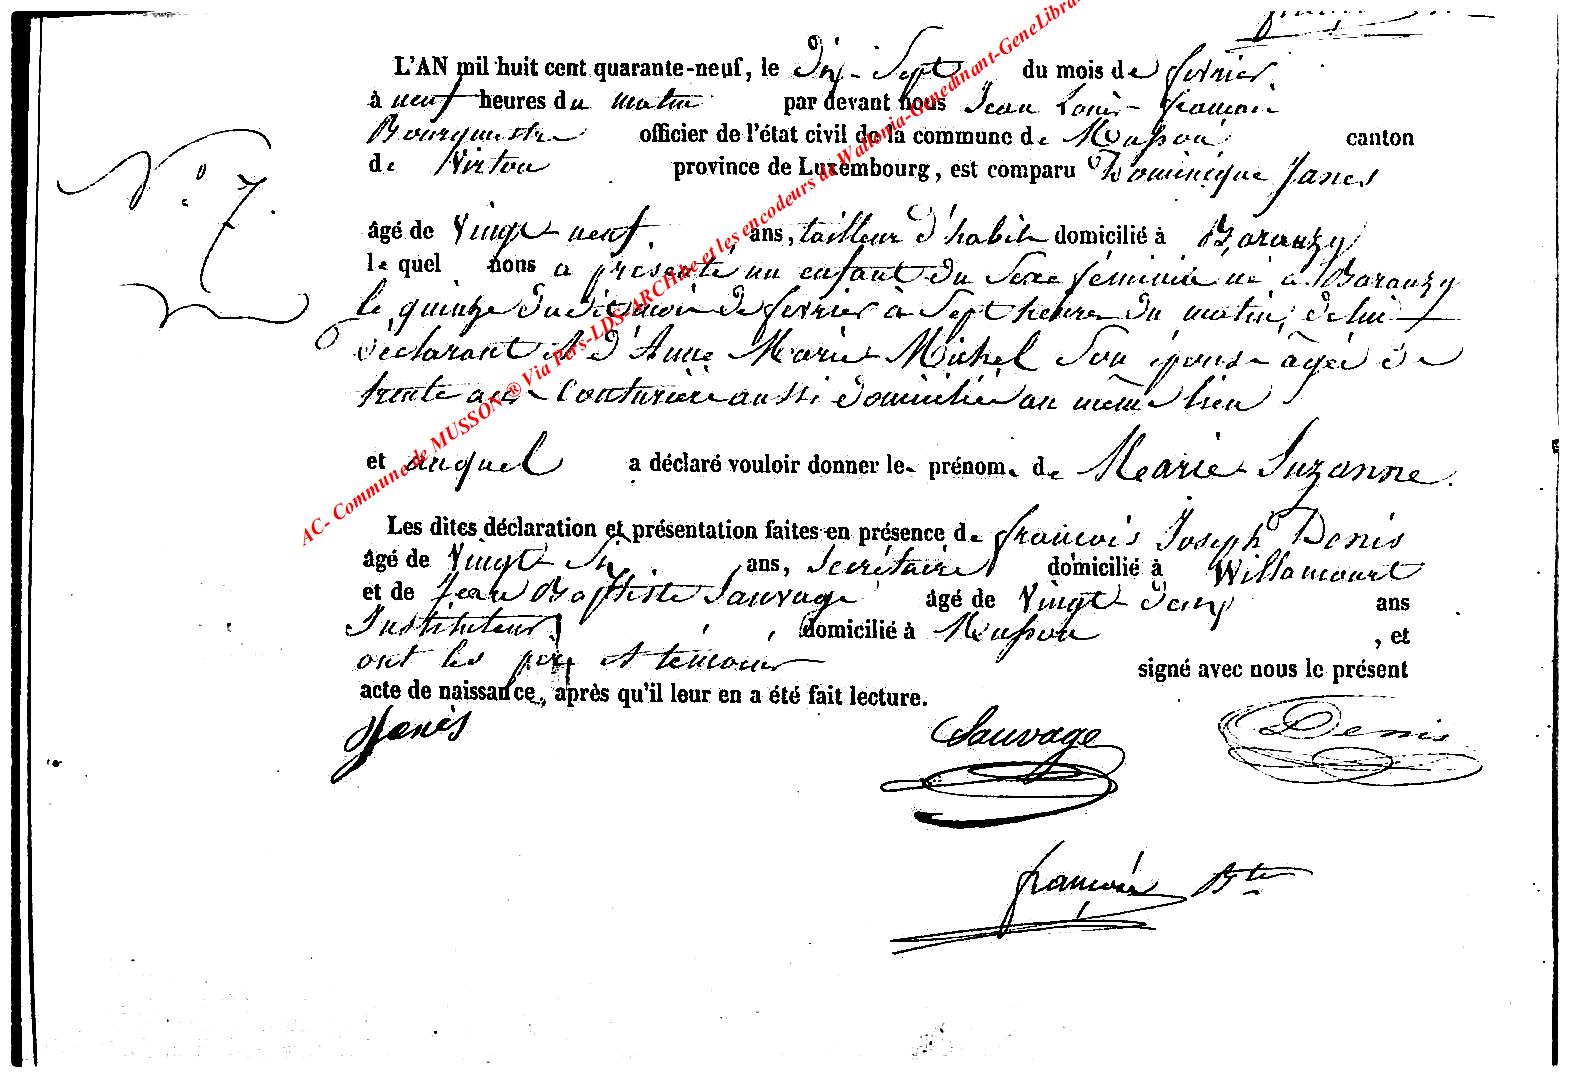 L'AN mil huit cent quarante-neuf, le dix-Sept du mois de fevrier
à neuf heures du matin par devant nous Jean Louis françois
Bourgmestre officier de l'état civil de la commune de Musson canton
de Virton province de Luxembourg, est comparu Dominique Janes
N° 7.
âgé de Vingt neuf. ans, tailleur d'habit domicilié à Baranzy
le quel nous a présenté un enfant du Sexe féminin né à Baranzy
le quinze du dit mois de fevrier à Sept heures du matin, de lui
déclarant et d'Anne Marie Michel Son épouse âgée de
trente ans Couturière aussi domiciliée au même lieu
et auquel a déclaré vouloir donner le prénom de Marie Suzanne.
Les dites déclaration et présentation faites en présence de françois Joseph Denis
âgé de Vingt Six ans, Secrétaire domicilié à Willancourt
et de Jean Baptiste Sauvage âgé de Vingt deux ans
Instituteur domicilié à Musson , et
ont les père et témoins signé avec nous le présent
acte de naissance, après qu'il leur en a été fait lecture.
Janès Sauvage Denis
françois Bte
AC- Commune de MUSSON ® Via Pers-LDS-ARCH.be et les encodeurs de Wallonia-Genedinant-GeneLibra